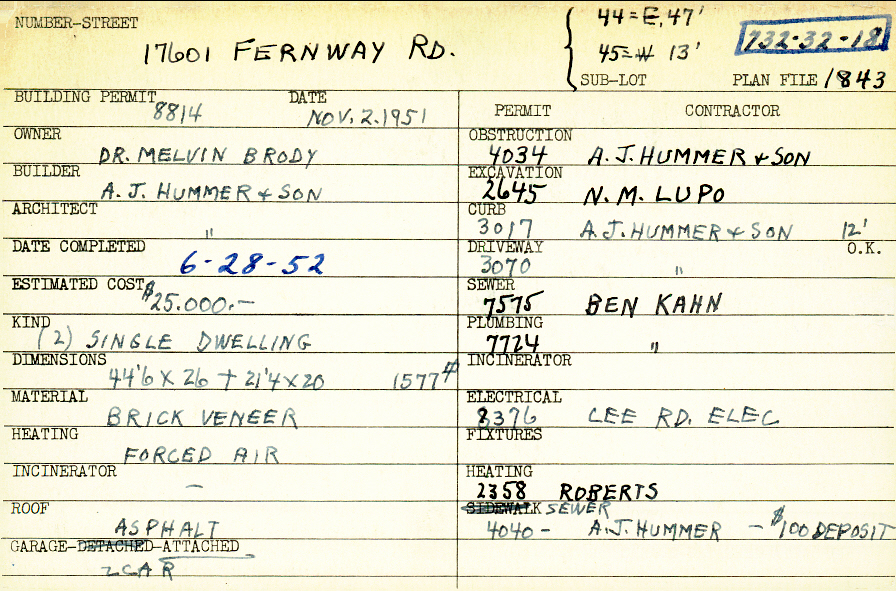 NUMBER-STREET
17601 FERNWAY RD.
44 = E, 47'
45 = W 13'
SUB-LOT
732-32-18
PLAN FILE 1843
BUILDING PERMIT DATE
8814 NOV. 2. 1951
OWNER
DR. MELVIN BRODY
BUILDER
A. J. HUMMER & SON
ARCHITECT
"
DATE COMPLETED
6-28-52
ESTIMATED COST
$25.000.-
KIND
(2) SINGLE DWELLING
DIMENSIONS
44'6 X 26 + 21'4 X 20 1577#
MATERIAL
BRICK VENEER
HEATING
FORCED AIR
INCINERATOR
-
ROOF
ASPHALT
GARAGE-DETACHED-ATTACHED
2 CAR
PERMIT CONTRACTOR
OBSTRUCTION
4034 A. J. HUMMER & SON
EXCAVATION
2645 N. M. LUPO
CURB
3017 A. J. HUMMER & SON 12'
DRIVEWAY O.K.
3070 "
SEWER
7575 BEN KAHN
PLUMBING
7724 "
INCINERATOR
ELECTRICAL
8376 LEE RD. ELEC
FIXTURES
HEATING
2358 ROBERTS
SIDEWALK SEWER
4040 - A. J. HUMMER - $100 DEPOSIT